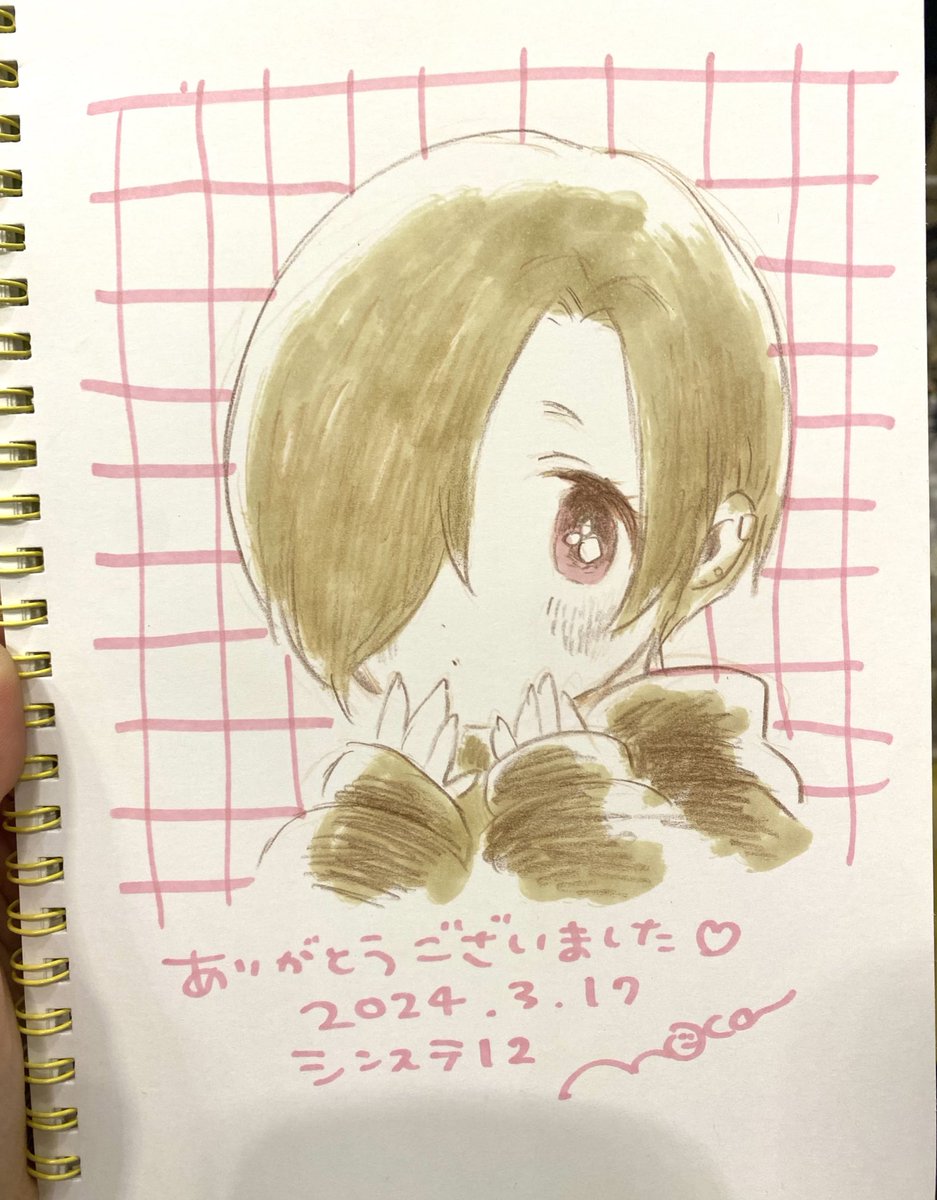 ありがとうございました♡
2024.3.17
シンステ12